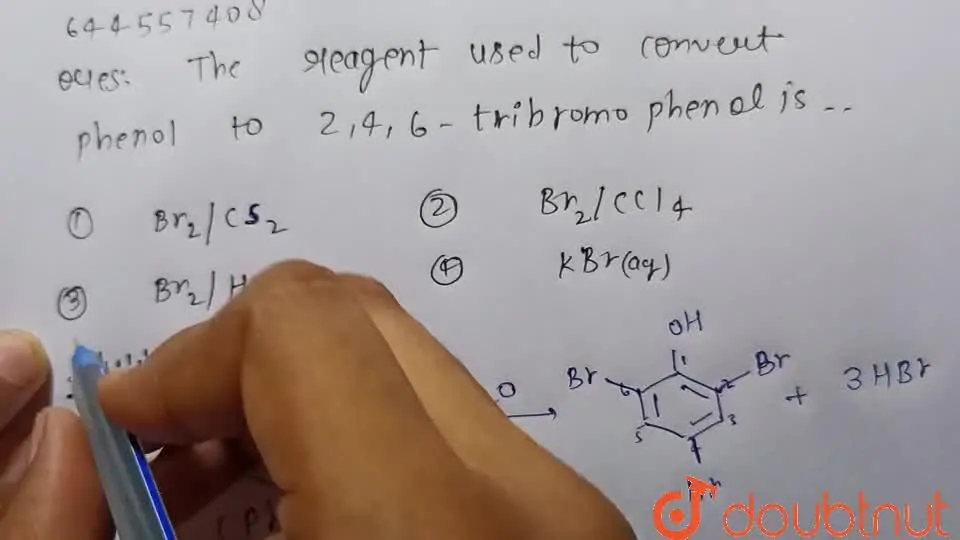 644557408
Ques: The reagent used to convert
phenol to 2,4,6-tribromophenol is ..
① Br2/CS2 ② Br2/CCl4
③ Br2/H ④ KBr(aq)
OH
Br 6 1 2 Br + 3HBr
O
5 3
4
doubtnut